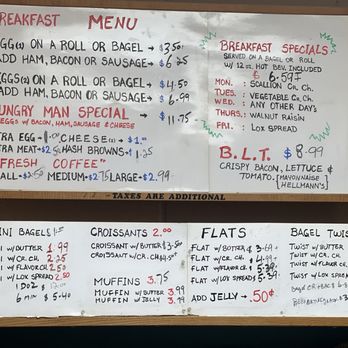 BREAKFAST MENU
EGG(S) ON A ROLL OR BAGEL → $3.50
ADD HAM, BACON OR SAUSAGE → $6.25
EGGS(S) ON A ROLL OR BAGEL → $4.50
ADD HAM, BACON OR SAUSAGE → $6.99
HUNGRY MAN SPECIAL → $11.75
EGGS W/ BACON, HAM, SAUSAGE & CHEESE
EXTRA EGG → CHEESE(S) → $1.00
EXTRA MEAT → $2.50 HASH BROWNS → $1.25
"FRESH COFFEE"
SMALL → $2.50 MEDIUM → $2.75 LARGE → $2.99
BREAKFAST SPECIALS
SERVED ON A BAGEL OR ROLL
W/ 12 OZ. HOT BEV. INCLUDED
$6.59
MON. : SCALLION CR. CH.
TUES. : VEGETABLE CR. CH.
WED. : ANY OTHER DAYS
THURS. : WALNUT RAISIN
FRI. : LOX SPREAD
B.L.T. $8.99
CRISPY BACON, LETTUCE &
TOMATO. [MAYONNAISE
HELLMANN'S]
TAXES ARE ADDITIONAL
MINI BAGELS
W/ BUTTER 1.99
W/ CR. CH. 2.25
W/ FLAVOR CH. 2.50
W/ LOX SPREAD 2.50
1 DOZ
6 MINI $5.40
CROISSANTS 2.00
CROISSANT W/ BUTTER $3.50
CROISSANT W/ CR. CH.
MUFFINS 3.75
MUFFIN W/ BUTTER 3.99
MUFFIN W/ JELLY 3.99
FLATS
FLAT W/ BUTTER $3.69
FLAT W/ CR. CH. $4.99
FLAT W/ FLAVOR CH. $5.39
FLAT W/ LOX SPREAD $5.39
ADD JELLY → .50¢
BAGEL TWIST
TWIST W/ BUTTER
TWIST W/ CR. CH.
TWIST W/ FLAVOR C
TWIST W/ LOX SPREA